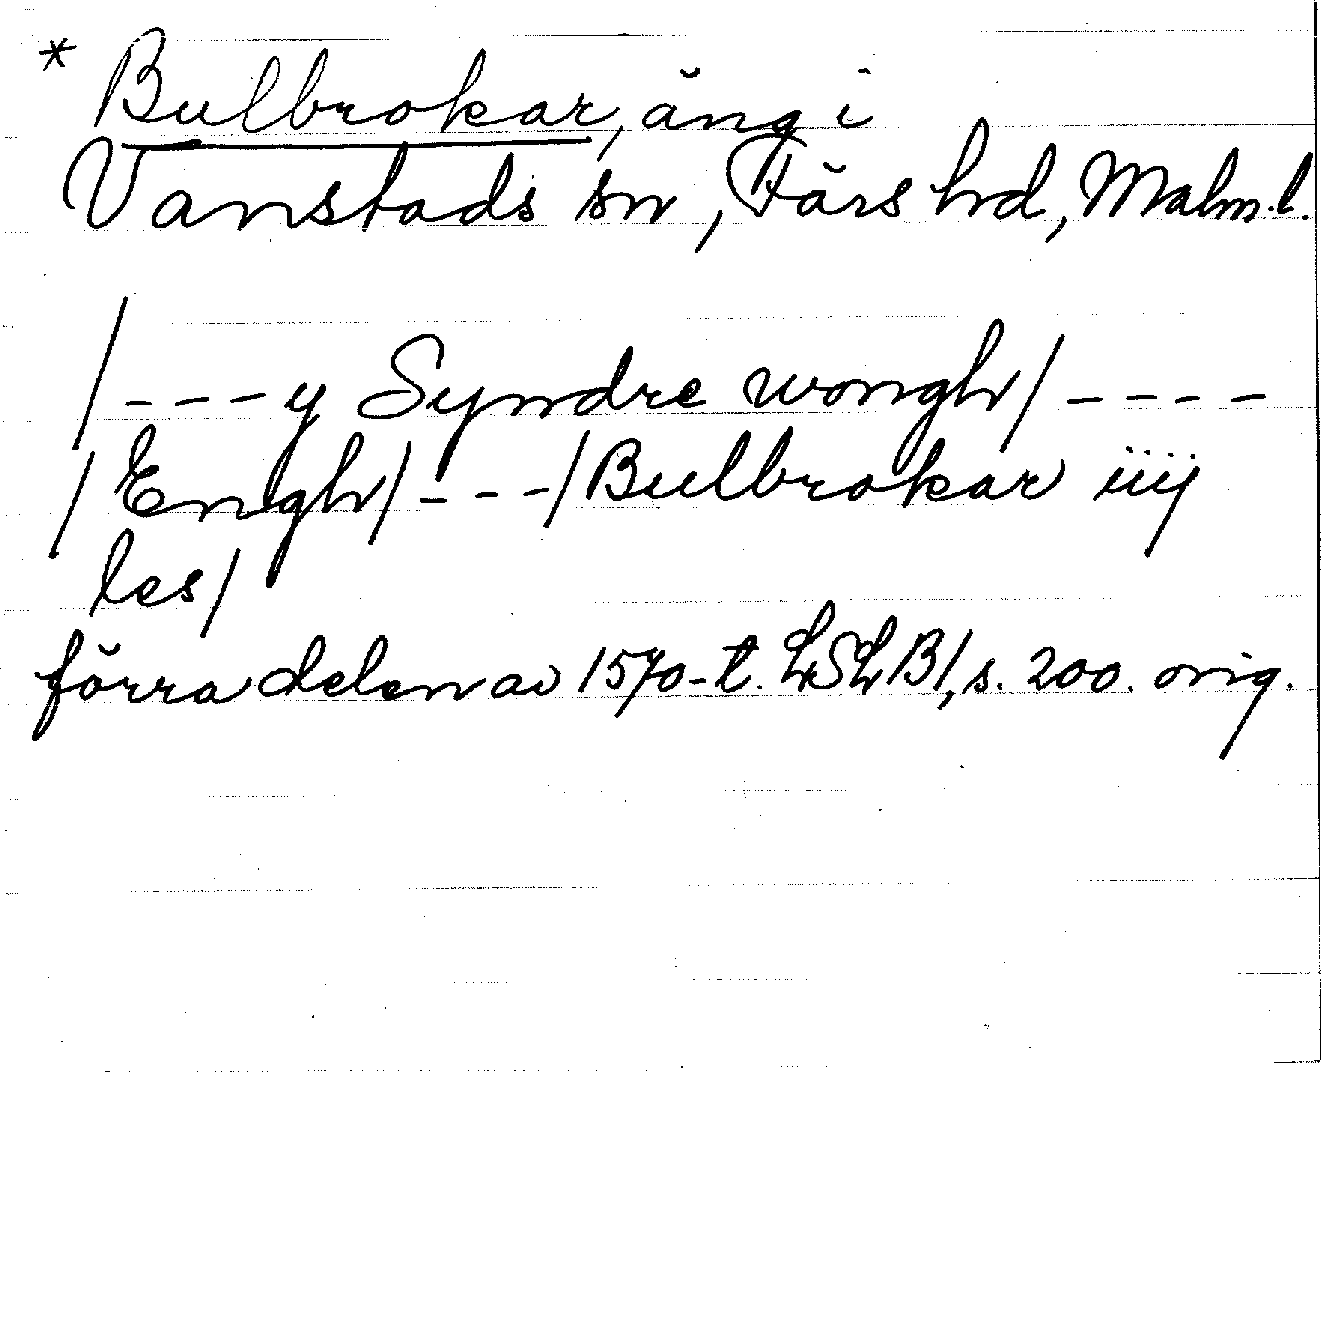 * Bulbrokar, äng i
Vanstads sn, Färs hd, Malm.l.
/---y Syndre wongh/----
/Engh/---/Bulbrokar iiij
les/
förra delen av 1570-t. LSLB1, s. 200. orig.